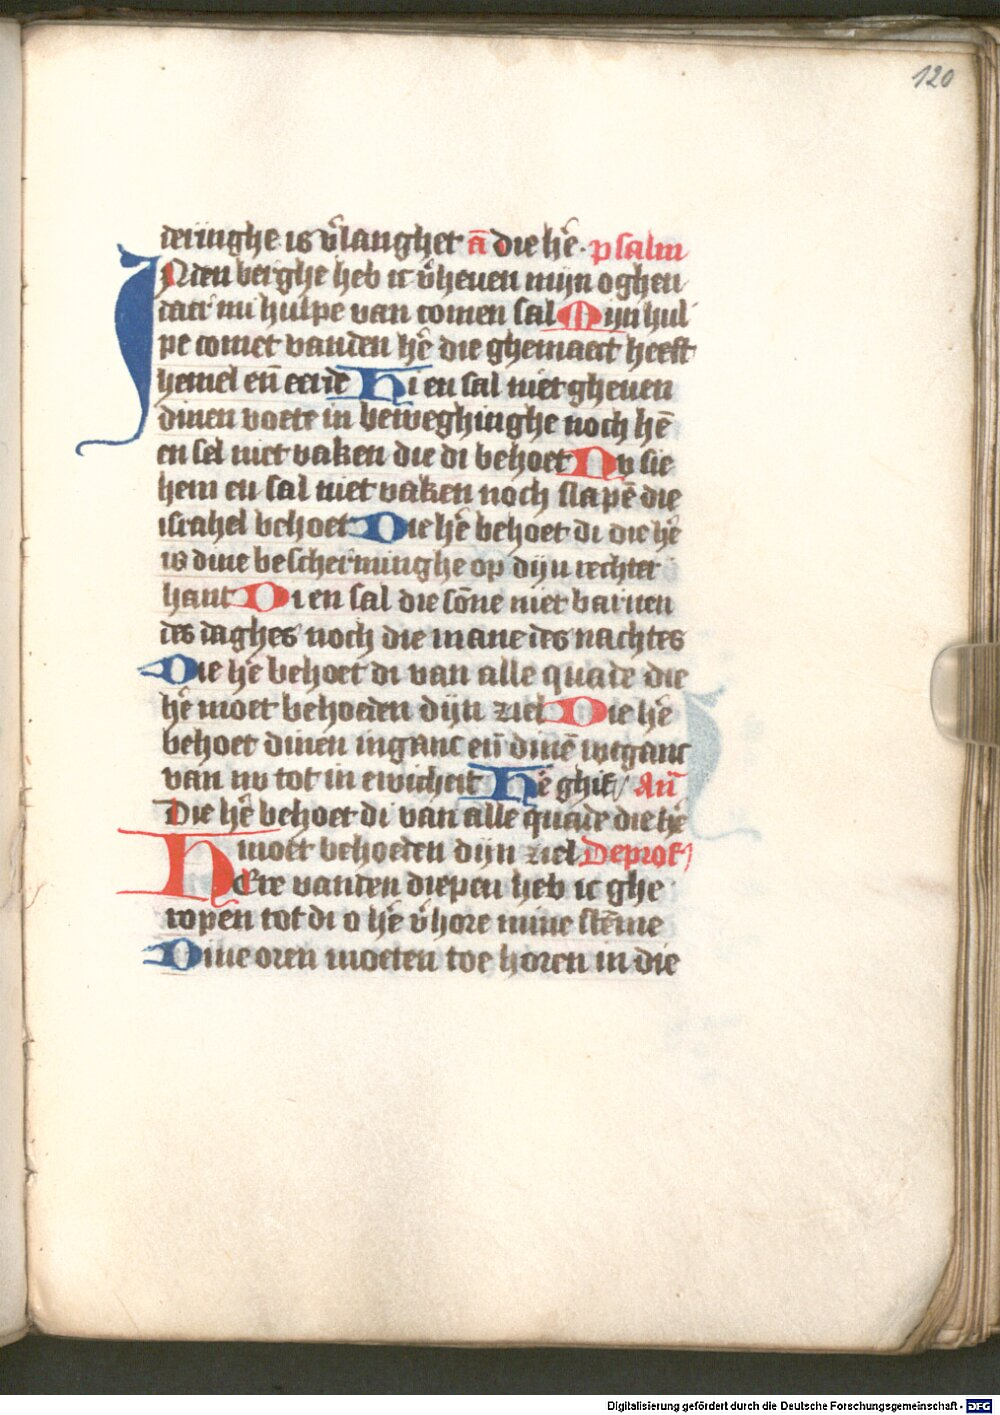 120
deringhe is v̉langhet ā die hē. psalm
INden berghe heb ic v̉heuen mijn oghen
daer mi hulpe van comen sal Mijn hul
pe comet vanden hē die ghemaect heeft
hemel eñ eerde Hi en sal niet gheuen
dinen voete in beweghinghe noch hē
en sel niet vaken die di behoet Nv sie
hem en sal niet vaken noch slapē die
israhel behoet Die hē behoet di die hē
is dine bescherminghe op dijn rechter
hant Di en sal die sōne niet barnen
des daghes noch die mane des nachtes
Die hē behoet di van alle quade die
hē moet behoeden dijn ziel Die hē
behoet dinen inganc eñ dinē wtganc
van nv tot in ewicheit Hē ghif/ Añ
Die hē behoet di van alle quade die hē
moet behoeden dijn ziel Deprof/
HEre vanden diepen heb ic ghe
ropen tot di o hē v̉hore mine stēme
Dine oren moeten toe horen in die
Digitalisierung gefördert durch die Deutsche Forschungsgemeinschaft - DFG